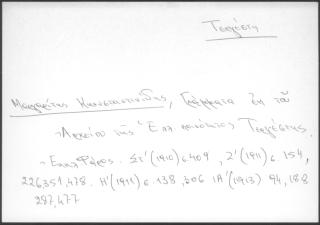 Τεργέστη
Μαργαρίτης Κωνσταντινίδης, Γράμματα ἐκ τοῦ
Ἀρχείου τῆς Ἑλλ κοινότητος Τεργέστης,
Ἐκκλ Φάρος. ΣΤ' (1910) σ 409, Ζ' (1911) σ. 154,
226,351,478. Η' (1911) σ 138, 306 ΙΑ' (1913) 94, 188
287,477